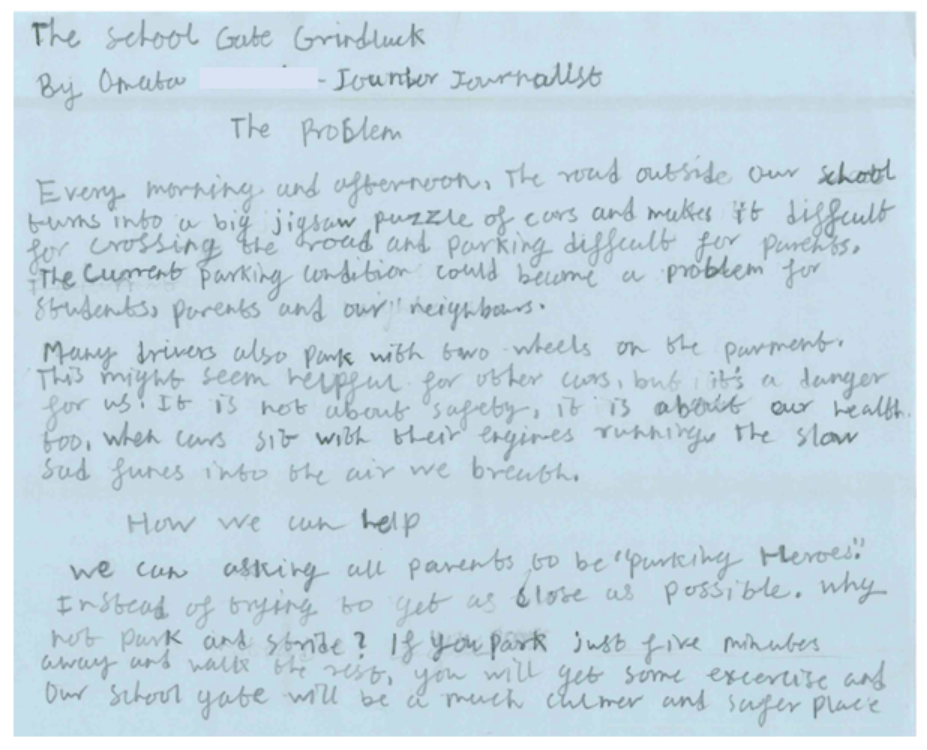 The School Gate Grindluck
By Omata - Jounter Journalist
The Problem
Every morning and afternoon, The road outside our school
turns into a big jigsaw puzzle of cars and makes it diffcult
for crossing the road and parking diffcult for parents.
The Current parking condition could become a problem for
students, parents and our neighbours.
Many drivers also park with two wheels on the parment.
This might seem helpful for other cars, but it's a danger
for us. It is not about safety, it is about our health
too, when cars sit with their engines running, the slow
sad funes into the air we breath.
How we can help
we can asking all parents to be "parking Heroes".
Instead of trying to get as close as possible. why
not park and stride? If you park just five minutes
away and walk the rest, you will get some excercise and
Our school gate will be a much calmer and safer place